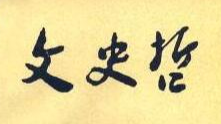 文史哲